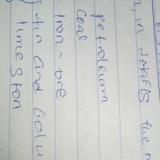 in details the m
petroleum
coal
Iron-ore
tin and colu
limeston